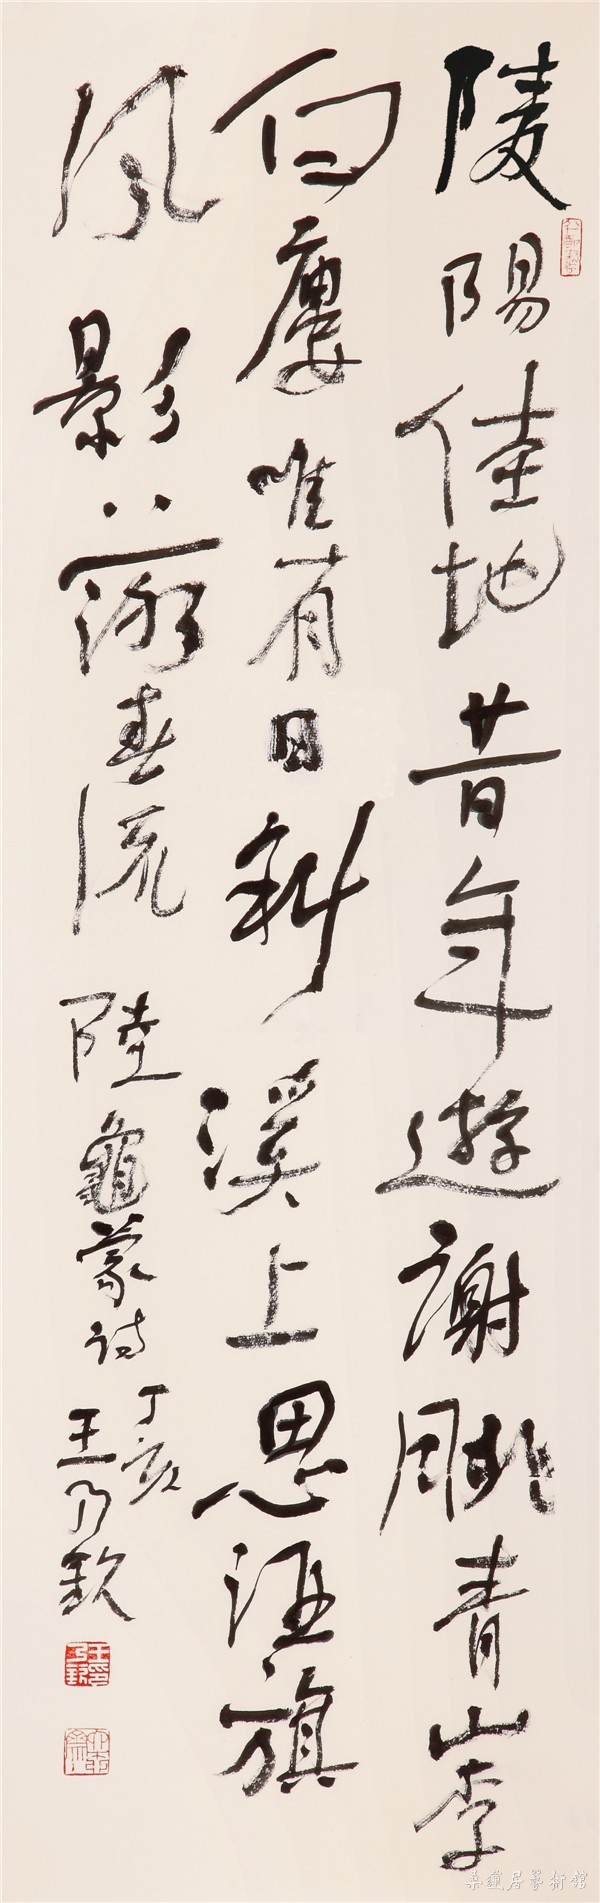 陵陽佳地昔年遊謝朓青山李
白廔唯有日斜溪上思酒旗
風影落春流 陸龜蒙詩 丁亥
王乃欽
桑蓮居藝術館